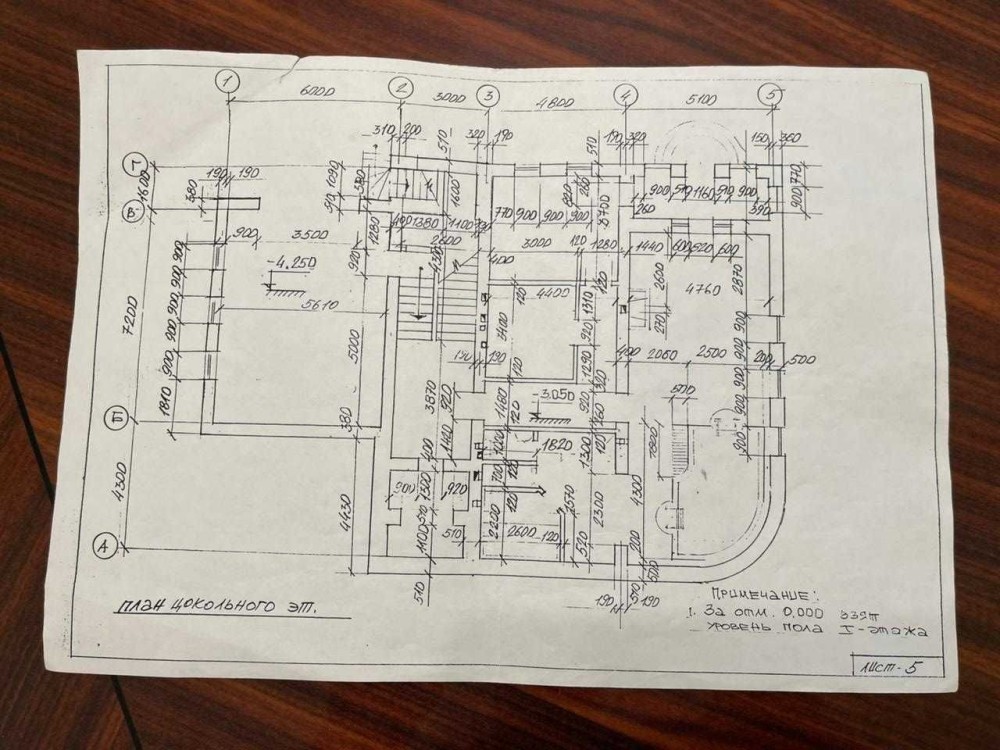 1 2 3 4 5
6000 3000 4800 5100
310 200 510 320 190 510 190 320 150 360
Г
1600
В
190 190
380
1090
510
1600
900 510 1160 510 900
770
900
260
390
3700
770 900 900 900
400 1380 1100
1280
900
3500
2600
3000 120 1280
1440 600 520 600
-4.250
920
400
4760
2600
2870
900
900
900
900
7200
5610
4400
120
1310
270
3400
920
5000
190
400 2060 2500 200 500
900
1290
120
500
1810
3870
920
-3.050
900
900
Б
380
1480
120
920
1440
1820
1300
120
4300
400
700
120
4300
900
1300
920
2200
120
1570
2300
4430
510
2600
120
А
1100
510
520
200
500
510
190
510
190
ПЛАН ЦОКОЛЬНОГО ЭТ.
ПРИМЕЧАНИЕ:
1. За отм. 0,000 взят
уровень пола I-этажа
Лист-5